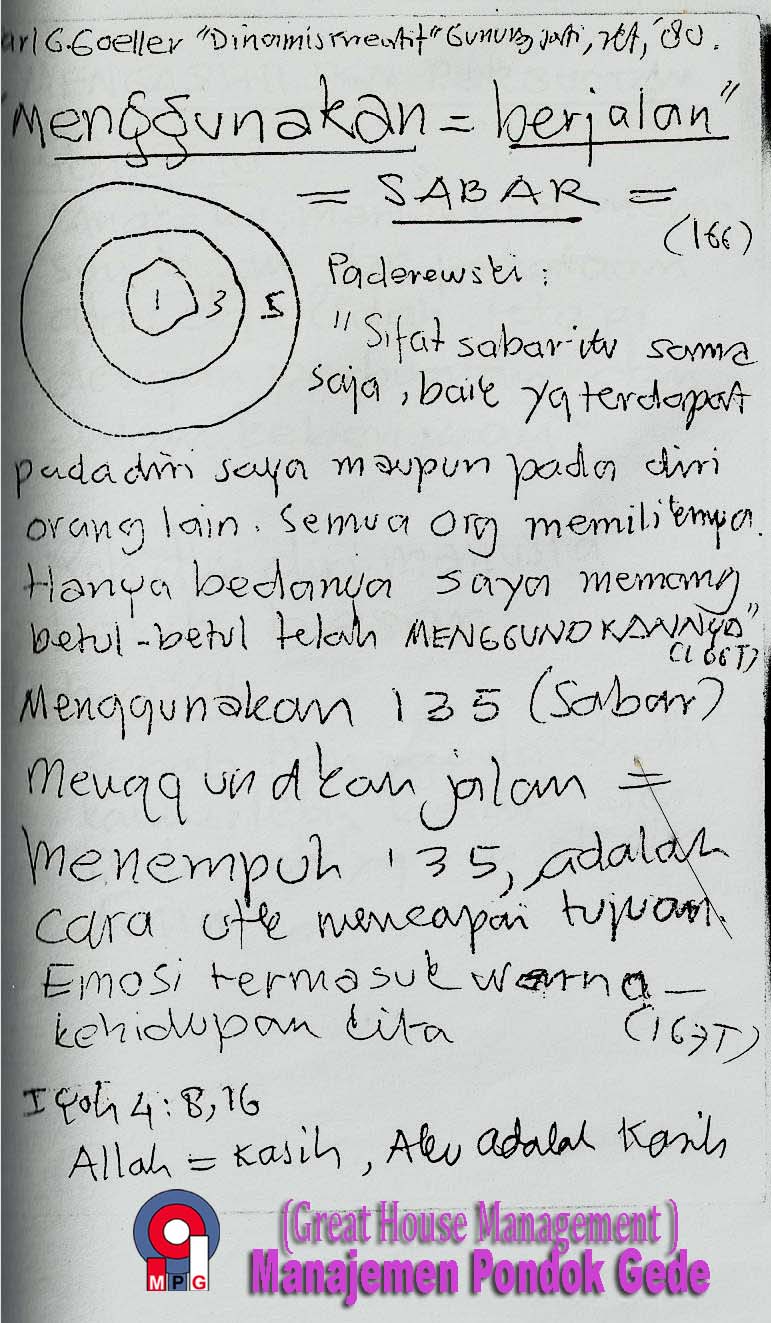 arl G. Goeller "Dinamis Kreatif" Gunung Jati, Jkt, '80.
"Menggunakan = berjalan"
= SABAR =
(166)
1 3 5
Paderewski :
"Sifat sabar itu sama
saja, baik yg terdapat
pada diri saya maupun pada diri
orang lain. Semua org memilikinya.
Hanya bedanya saya memang
betul-betul telah MENGGUNAKANNYA"
(166T)
Menggunakan 135 (Sabar)
Menggunakan jalan =
Menempuh 135, adalah
cara utk mencapai tujuan.
Emosi termasuk warna
kehidupan kita (167T)
I Yoh 4:8,16
Allah = Kasih, Aku adalah Kasih
MPG
(Great House Management)
Manajemen Pondok Gede